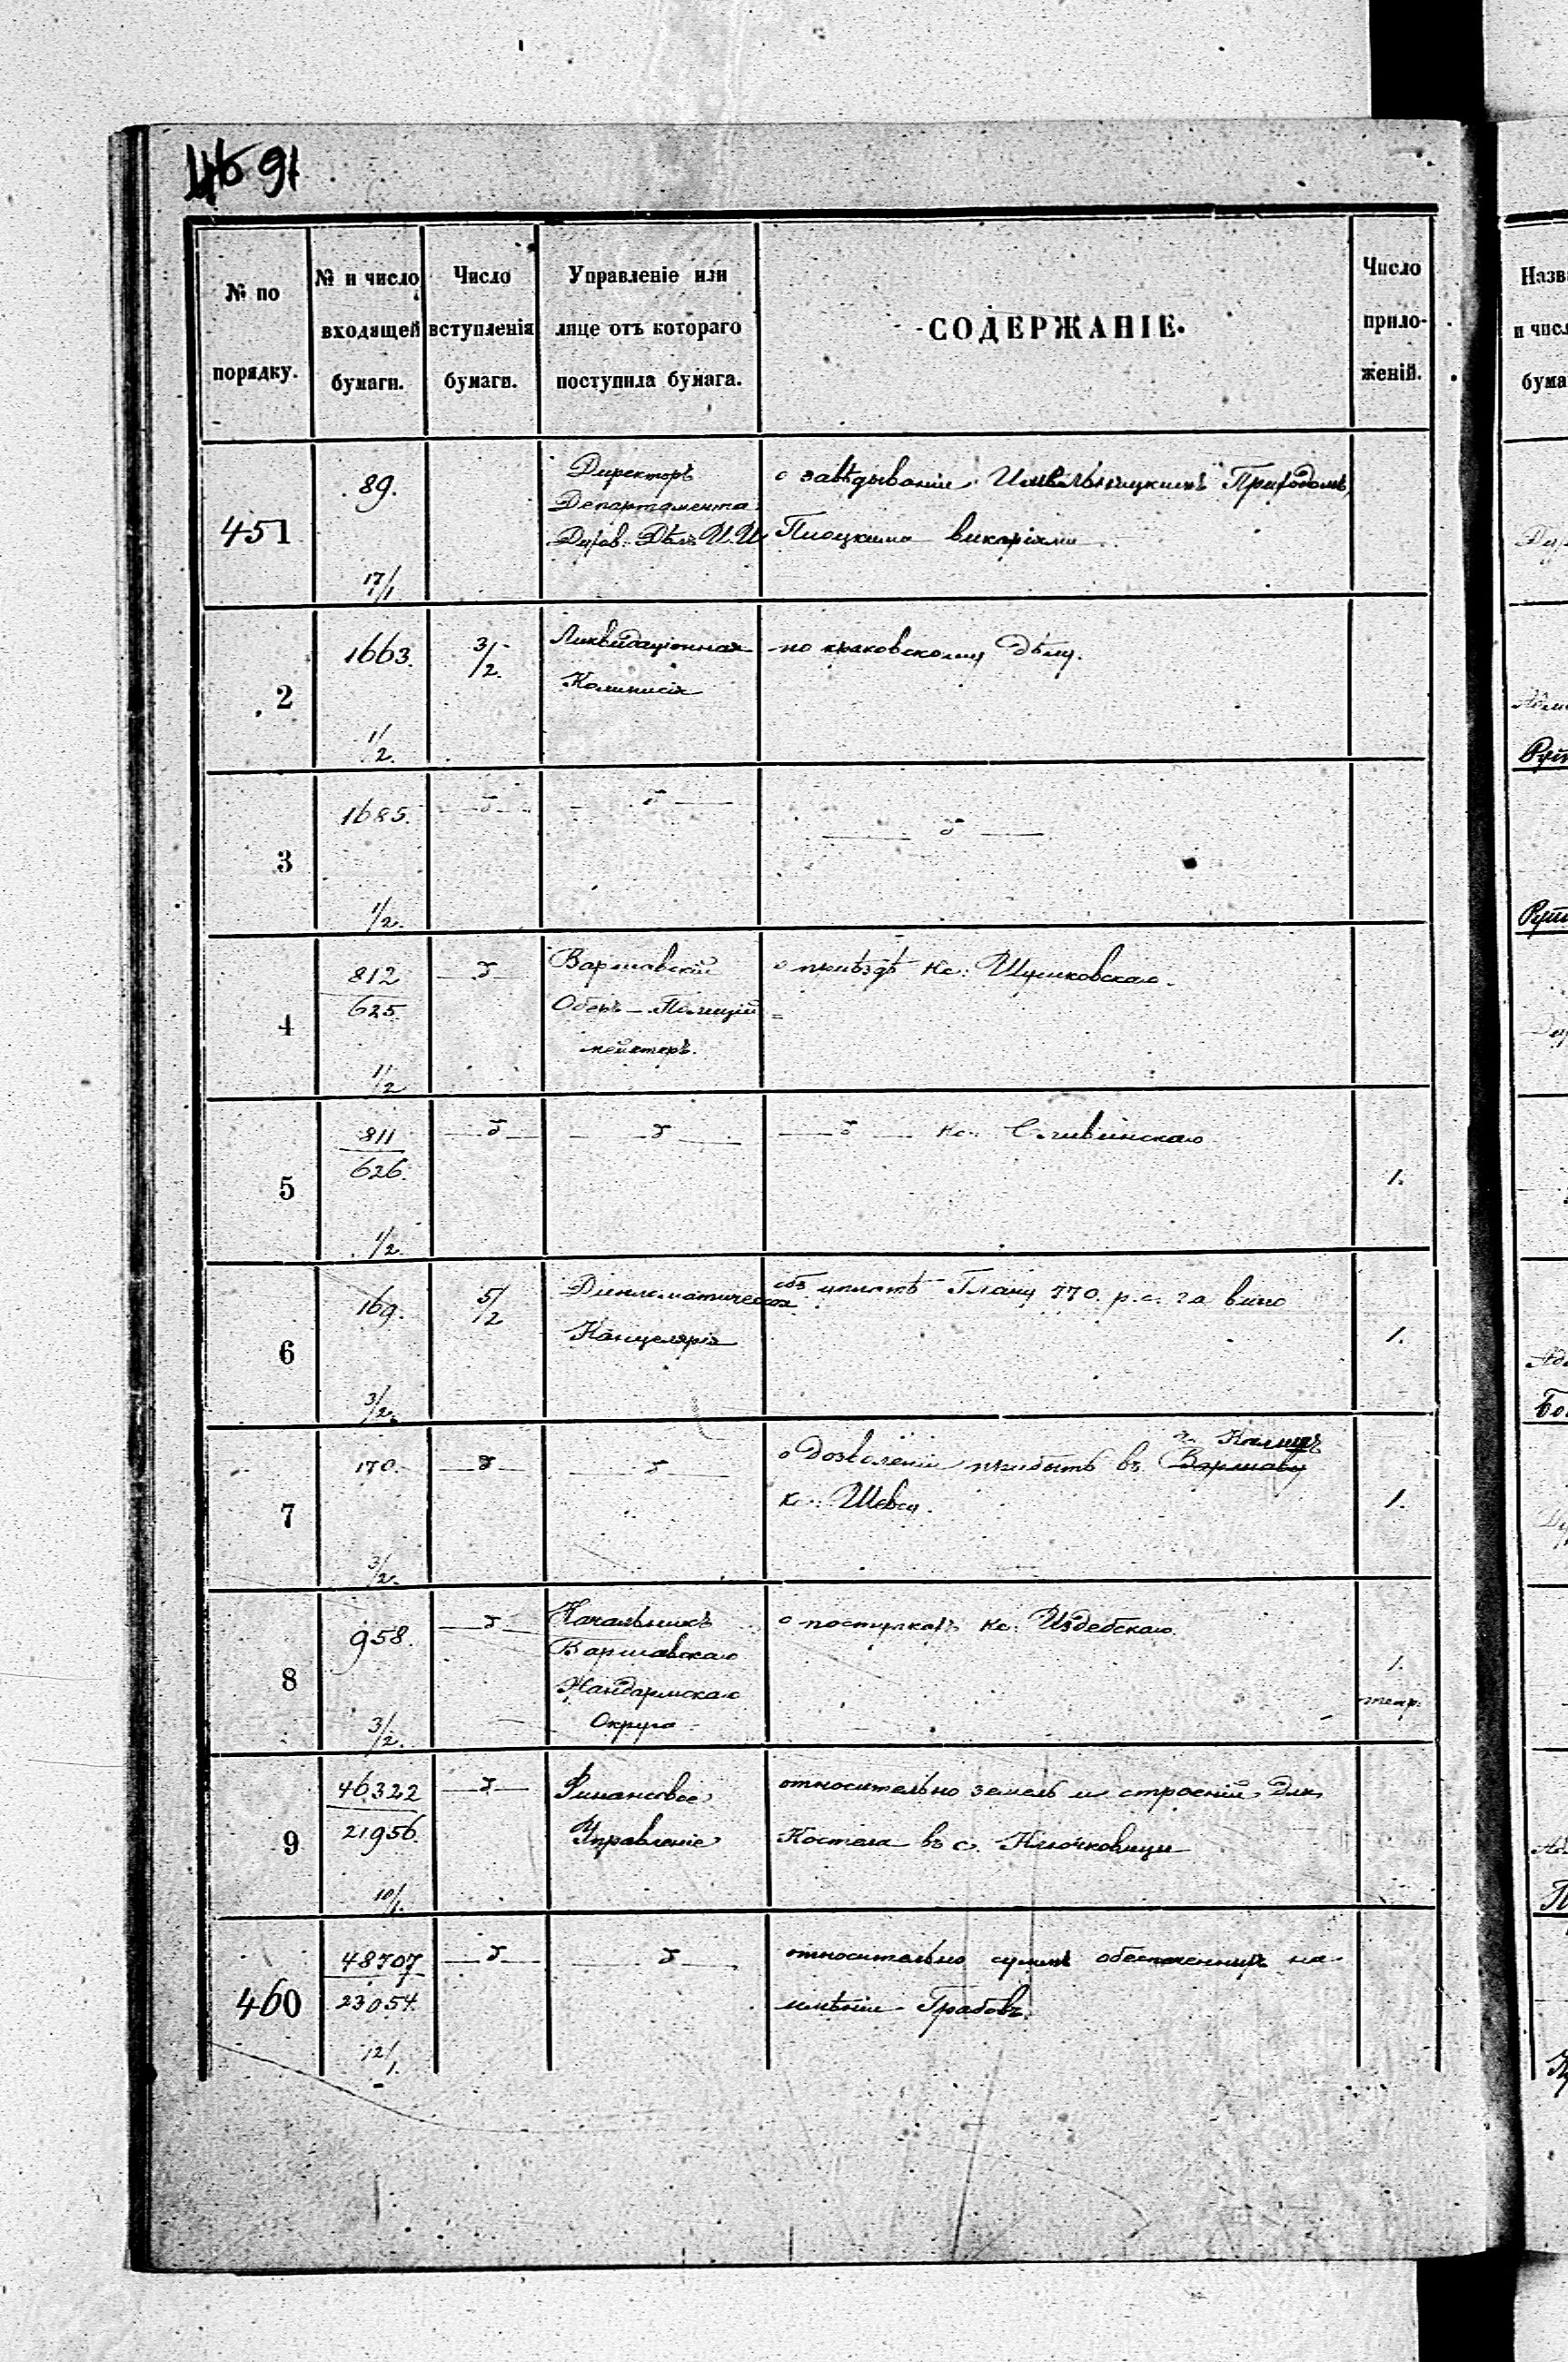 91
№ по порядку.
№ и число входящей бумаги.
Число вступленія бумаги.
Управленіе или лице отъ котораго поступила бумага.
СОДЕРЖАНІЕ.
Число прило-женій.
451
89.
17/1
Директоръ
Департамента
Духов. Дѣлъ И. И.
о завѣдываніи Приходомъ,
викаріями
2
1663.
1/2.
3/2.
Ликвидаціонная
Коммисія
по краковскому дѣлу.
3
1685.
1/2.
4
812
625.
1/2
Варшавскій
Оберъ-Полицій=
мейстеръ.
о пріѣздѣ Кс. Шумковскаго.
5
811
626.
1/2.
Кс. Сливинскаго
1.
6
169.
3/2.
5/2
Дипломатическая
Канцелярія
объ уплатѣ 770. р. с. за вино
1.
7
170.
3/2.
о дозволеніи прибыть въ г. Калишъ
Варшаву
кс. Шевц
1.
8
958.
3/2.
Начальникъ
Варшавскаго
Жандармскаго
Округа
о поступкахъ Кс. Издебскаго.
1.
9
46322
21956.
10/1.
Финансовое
Управленіе
относительно земель и строеній для
Костела въ с. Ключковицы
460
48707
23054.
12/1.
относительно суммъ обезпеченныхъ на
имѣніи Грабовъ.
Назв
и числ
бума